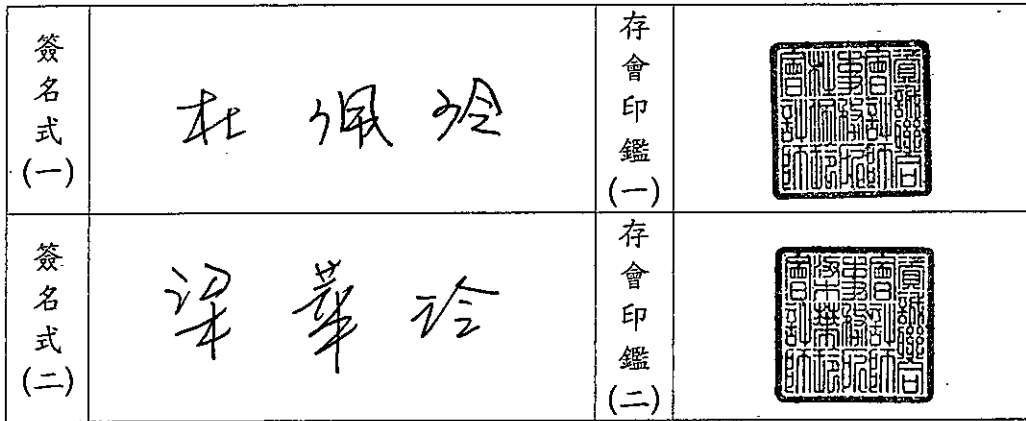 簽名式(一)
杜佩玲
存會印鑑(一)
資誠聯合
會計師
事務所
杜佩玲
會計師
簽名式(二)
梁華玲
存會印鑑(二)
資誠聯合
會計師
事務所
梁華玲
會計師